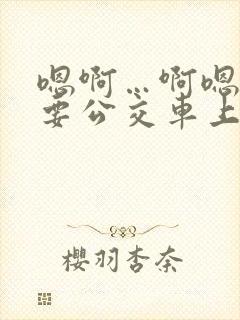 嗯啊…啊嗯
要公交车上
樱羽杏奈